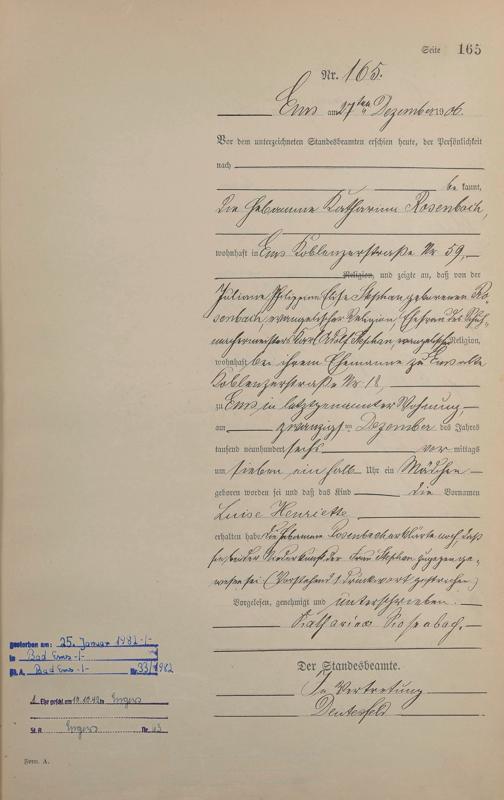 Seite 165
Nr. 165.
Ems am 27ten Dezember 1906.
Vor dem unterzeichneten Standesbeamten erschien heute, der Persönlichkeit
nach
be kannt,
die Hebamme Katharina Rosenbach,
wohnhaft in Ems Koblenzerstraße Nr 59,
Religion, und zeigte an, daß von der
Juliane Philippine Elise Stephan, geborenen Ro-
senbach, evangelischer Religion, Ehefrau des Schuh-
machermeisters Karl Adolf Stephan, evangelischer Religion,
wohnhaft bei ihrem Ehemanne zu Ems alte
Koblenzerstraße Nr. 18,
zu Ems in letztgenannter Wohnung
am zwanzigsten Dezember des Jahres
tausend neunhundert sechs vor mittags
um sieben ein halb Uhr ein Mädchen
geboren worden sei und daß das Kind die Vornamen
Luise Henriette
erhalten habe. Die Hebamme Rosenbach erklärte noch, daß
sie bei der Niederkunft der Frau Stephan zugegen ge-
wesen sei. (Vorstehend 1 Druckwort gestrichen)
Vorgelesen, genehmigt und unterschrieben.
Katharina Rosenbach.
Der Standesbeamte.
In Vertretung
gestorben am: 25. Januar 1982 -/-
in Bad Ems -/-
St. A. Bad Ems -/- Nr. 33/1982
1. Ehe geschl. am 10.10.42 in Engers
St. A. Engers Nr. 43
Form. A.